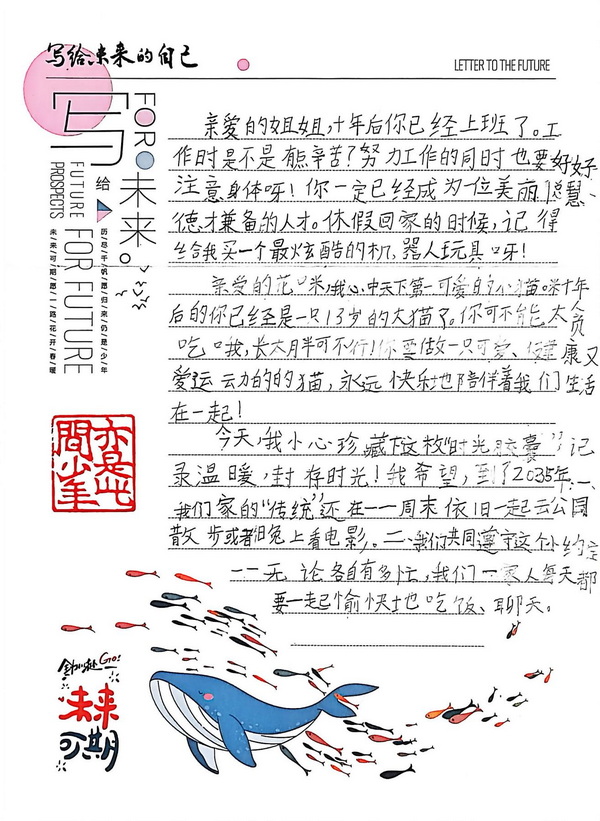 写给未来的自己
LETTER TO THE FUTURE
写
给
FOR
未来。
FUTURE
PROSPECTS
FOR FUTURE
历尽千帆归来仍是少年
未来可期愿一路花开春暖
亲爱的姐姐，十年后你已经上班了。工
作时是不是有点辛苦？努力工作的同时也要好好
注意身体呀！你一定已经成为一位美丽聪慧、
德才兼备的人才。休假回家的时候，记得
给我买一个最炫酷的机器人玩具呀！
亲爱的花咪，我心中天下第一可爱的小猫咪十年
后的你已经是一只13岁的大猫了。你可不能太贪
吃哦，长太月半可不行！你要做一只可爱、健康又
爱运动的的猫，永远快乐地陪伴着我们生活
在一起！
今天，我小心珍藏下这枚“时光胶囊”记
录温暖，封存时光！我希望，到了2035年：一、
我们家的“传统”还在——周末依旧一起去公园
散步或者抱兔上看电影。二、我们共同遵守这个小约定
——无论各自有多忙，我们一家人每天都
要一起愉快地吃饭、聊天。
亦是此間少年
Go!
未来
可期